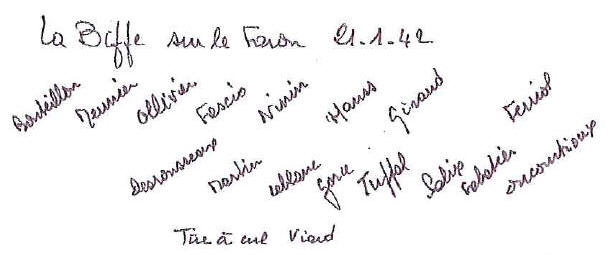 La Biffe sur le Faron 21-1-42
Barbillon Meunier Ollivier Fascio Ninin Hanss Giraud Ferriol
Desrousseaux Martin Leblanc Gave Tuffal Salise Sabatier
Tire à cul Viard